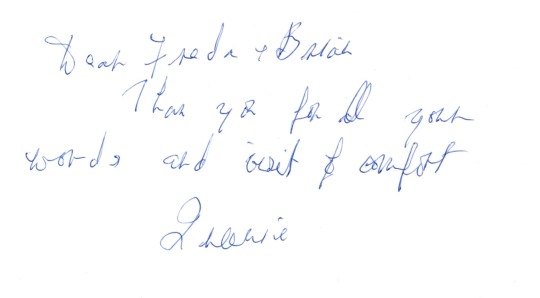 Dear Freda + Brian
Than you for all your
words and visit & comfort